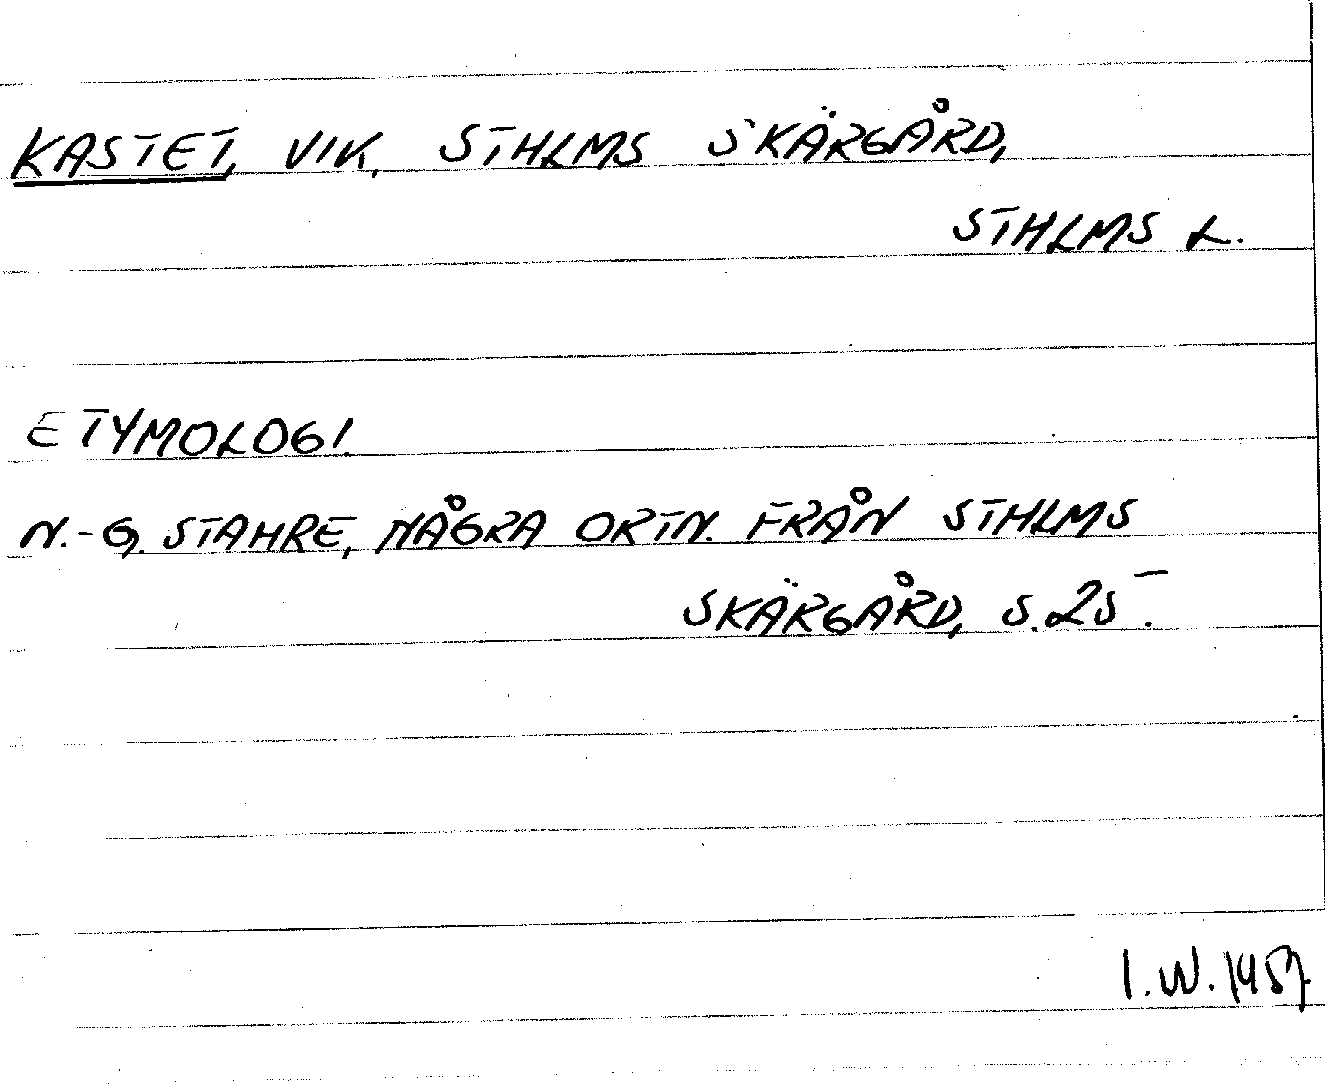 KASTET, VIK, STHLMS SKÄRGÅRD,
STHLMS L.
ETYMOLOGI.
N.-G. STAHRE, NÅGRA ORTN. FRÅN STHLMS
SKÄRGÅRD, S. 25.
I.W. 1957